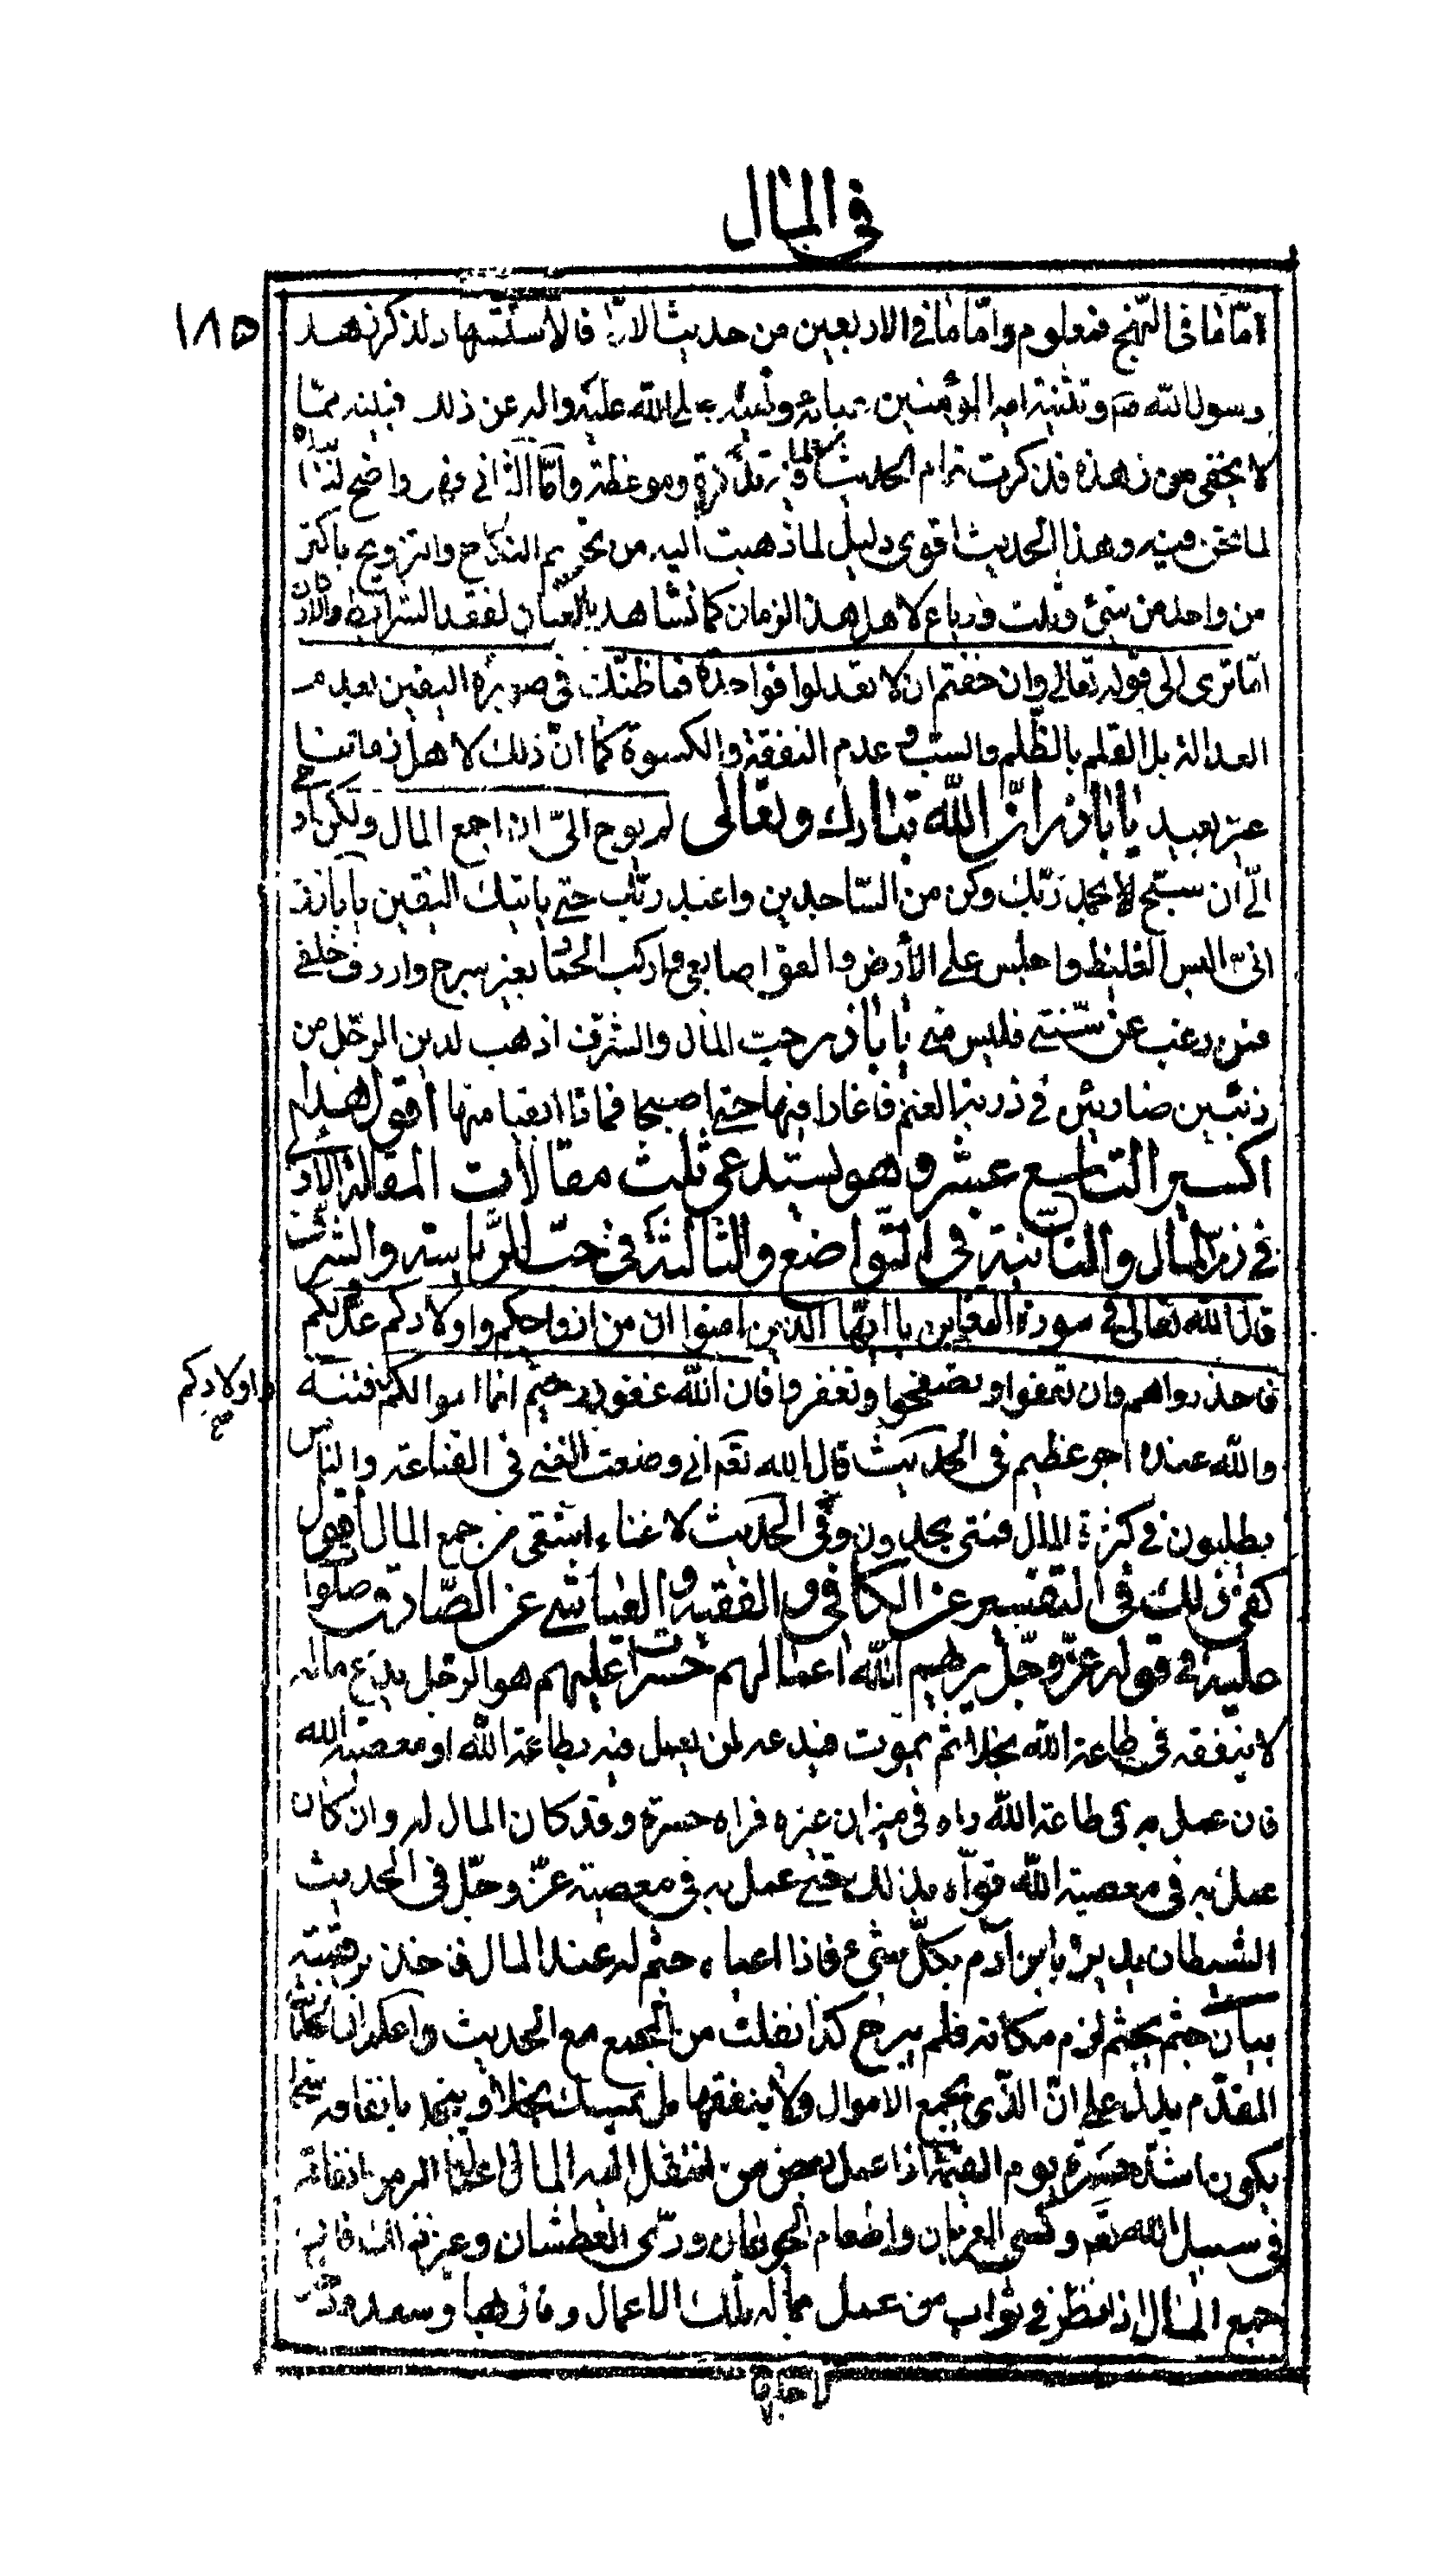 في المال
١٨٥
امّا ما في النهج فمعلوم وامّا ما في الاربعين من حديث فالاستشهاد لذكر زهد
رسول الله ص وتثنية امير المؤمنين عليه واله عن ذلك
لا يخفى من زهده فذكرت تمام الحديث تذكرة وموعظة وامّا الثاني فهو واضح
لما نحن فيه وهذا الحديث اقوى دليل لما ذهبت اليه من تحريم النكاح والتزويج باكثر
من واحد من مثنى وثلث ورباع لاهل هذ الزمان كما نشاهد بالعيان لفقد الشرايط
اما ترى الى قوله تعالى وان خفتم ان لا تعدلوا فواحدة فما ظنّك في صورة اليقين بعدم
العدالة بل العلم بالظلم والسبّ و عدم النفقة والكسوة كما انّ ذلك لاهل زماننا
غير بعيد يا باذر انّ الله تبارك وتعالى لم يوح اليّ ان اجمع المال ولكن اوحى
اليّ ان سبّح بحمد ربّك وكن من الساجدين واعبد ربّك حتى ياتيك اليقين يا باذر
انى البس الغليظ واجلس على الأرض والعق اصابعي واركب الحمار بغير سرج واردف خلفي
فمن رغب عن سنّتي فليس منى يا باذر حبّ المال والشرف اذهب لدين الرجل من
ذئبين ضاريين في زريبة الغنم فاغارا فيها حتى اصبحا فماذا ابقيا منها أقول هذا
اكسير التاسع عشر وهو يستدعى ثلث مقالات المقالة الاولى
في ذمّ المال والثانية في التواضع والثالثة في حبّ الرّياسة والشرف
قال الله تعالى في سورة التغابن يا ايّها الذين امنوا ان من ازواجكم واولادكم عدوا لكم
فاحذروهم وان تعفوا وتصفحوا وتغفروا فان الله غفور رحيم انما اموالكم فتنة
واولادكم
صح
والله عنده اجر عظيم في الحديث قال الله تعـ اني وضعت الغنى في القناعة والناس
يطلبون في كثرة المال فمتى يجدون وفي الحديث لا غناء اشقى من جمع المال أقول
كفى ذلك في التفسير عن الكافي و الفقيه و العياشي عن الصّادق صلوا
عليه في قوله عزّ وجلّ يريهم الله اعمالهم حسرات عليهم هو الرجل يدع ماله
لا ينفقه في طاعة الله بخلا ثم يموت فيدعه لمن يعمل فيه بطاعة الله او معصية الله
فان عمل به في طاعة الله راه في ميزان غيره فراه حسرة وقد كان المال له وان كان
عمل به في معصية الله قوّاه بذلك حتى عمل به في معصية عزّ وجلّ في الحديث
الشيطان يدير يا ابن آدم بكلّ شئ فاذا اعياه جثم له عند المال فاخذ برقبته
بيان جثم يجثم لزم مكانه فلم يبرح كذا نقلت من المجمع مع الحديث واعلم ان الحديث
المقدّم يدل على انّ الذّي يجمع الاموال ولا ينفقها بل يمسك بخلا
يكون اشد حسرة يوم القيمة اذا عمل بعض من انتقل اليه المال
في سبيل الله تعـ وكسى العريان واطعام الجوعان وروّى العطشان وغير ذلك فانه
جمع المال اذ انظر في ثواب من عمل بماله بتلك الاعمال